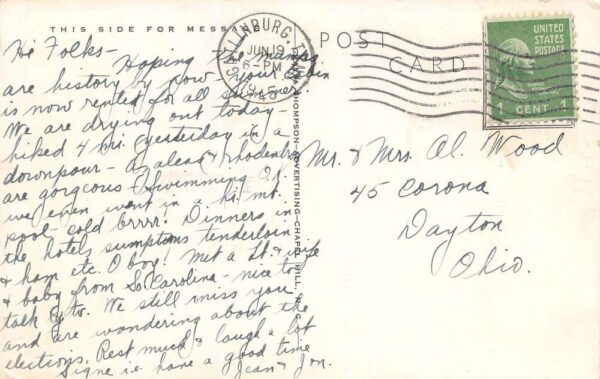 THIS SIDE FOR MESSAGE
POST CARD
GATLINBURG, TENN.
JUN 19
6-PM
1945
UNITED
STATES
POSTAGE
1 CENT 1
Hi Folks-
Hoping the mumps
are history by now- your cabin
is now rented for all summer
We are drying out today-
hiked 4 hrs. yesterday in a
downpour - azaleas & rhodendrons
are gorgeous Swimming O.K.
we even went in a hi mt.
pool - cold brrr! Dinners in
the hotel, sumptous tenderloin
& ham etc. O boy! Met a Lt. & wife
& baby from So Carolina - nice to
talk to. We still miss you
and are wondering about the
elections. Rest much & laugh a lot
Signe i.e. have a good time
Jean & Jon.
THOMPSON-ADVERTISING-CHAPEL HILL, N. C.
Mr. & Mrs. Al. Wood
45 Corona
Dayton
Ohio.